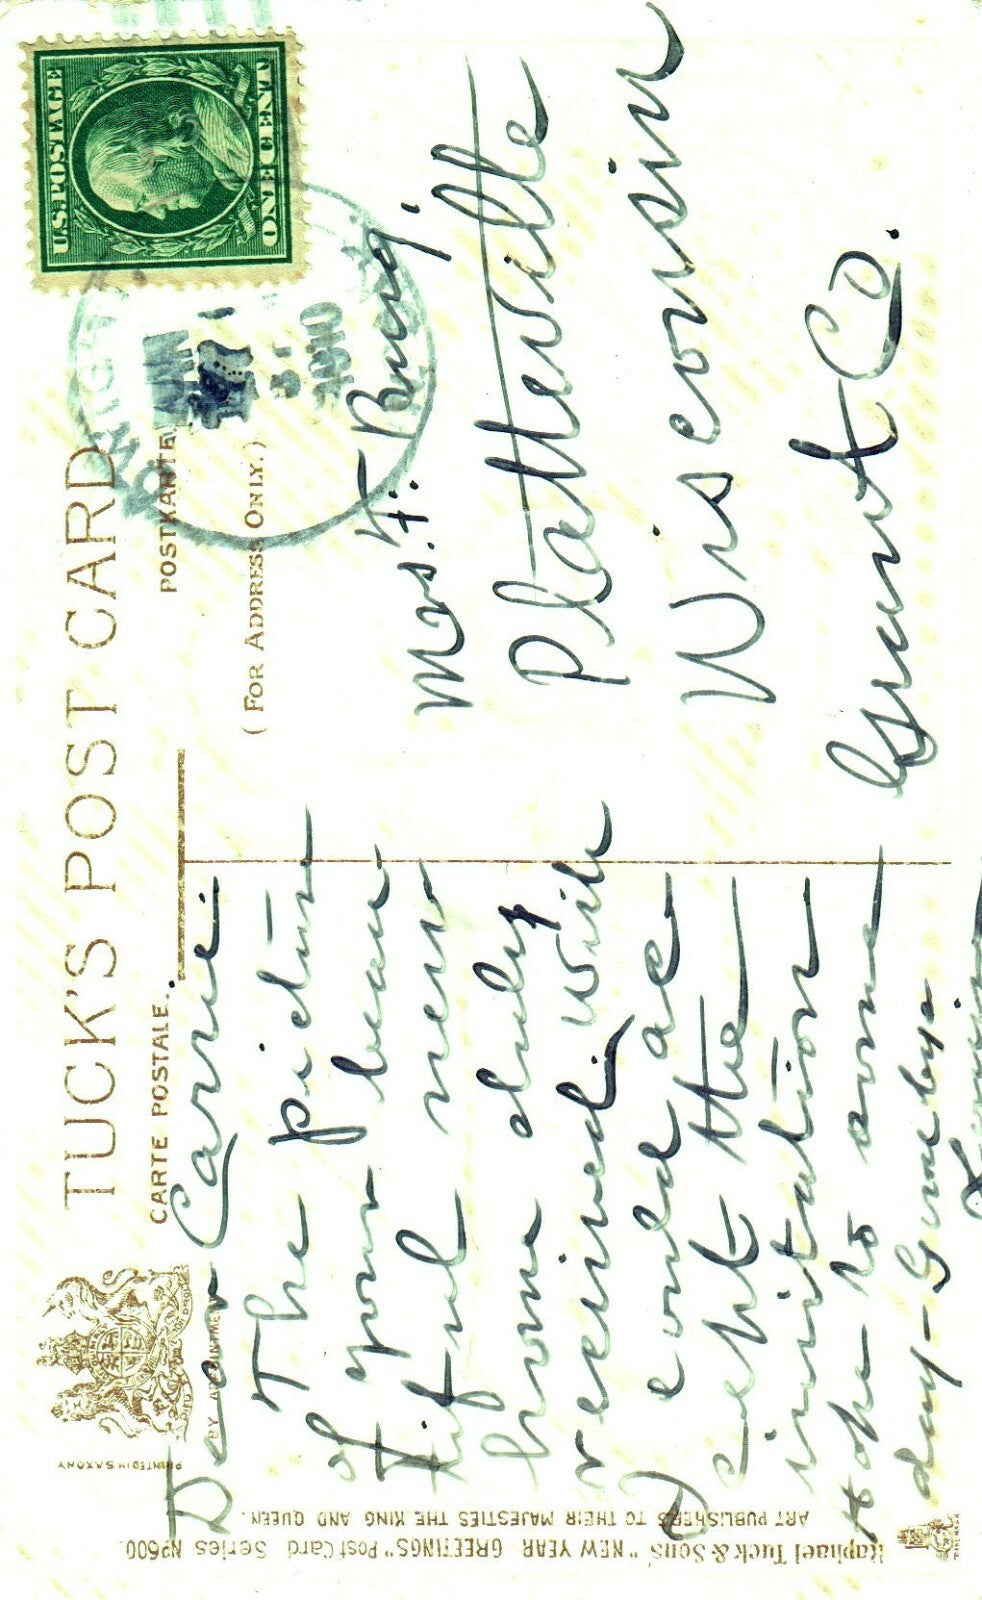 TUCK'S POST CARD
CARTE POSTALE.
POSTKARTE
(FOR ADDRESS ONLY.)
BY APPOINTMENT
PRINTED IN SAXONY
U.S. POSTAGE
ONE CENT
JAN
1910
Dear Carrie.
The pictur
of your beau
tiful new
home duly
received. Wish
I could ac
cept the
invitation
Hope to some
day - Goodbye
Mrs. F.
Platteville
Wisconsin
Grant Co.
Raphael Tuck & Sons' "NEW YEAR GREETINGS" Post Card Series No 600.
ART PUBLISHERS TO THEIR MAJESTIES THE KING AND QUEEN.